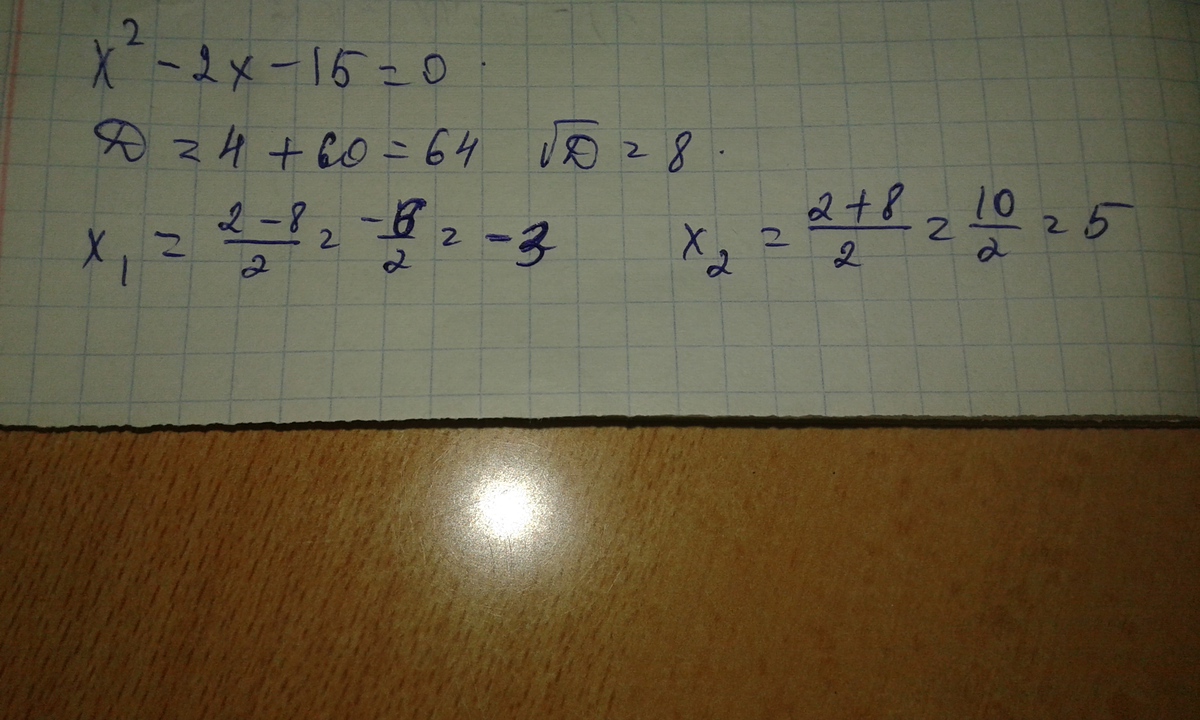 x² - 2x - 15 = 0
D = 4 + 60 = 64 √D = 8
x₁ = (2-8)/2 = -6/2 = -3 x₂ = (2+8)/2 = 10/2 = 5